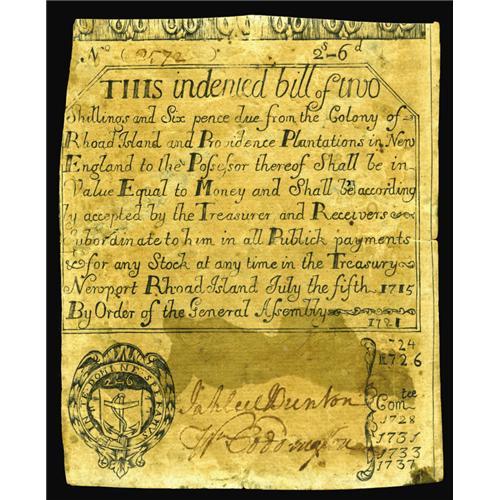 No (2572) 2s-6d
THIS indented bill of two
Shillings and Six pence due from the Colony of
Rhoad Island and Providence Plantations in New
England to the Posessor thereof Shall be in
Value Equal to Money and Shall be according
ly accepted by the Treasurer and Receivers
Subordinate to him in all Publick payments
& for any Stock at any time in the Treasury
Newport Rhoad Island July the fifth 1715
By Order of the General Assembly
1721
1724
1726
IN TE DOMINE SPERAMUS
2-6
Jahleel Brenton
Wm Coddington
Comtee
1728
1731
1733
1737